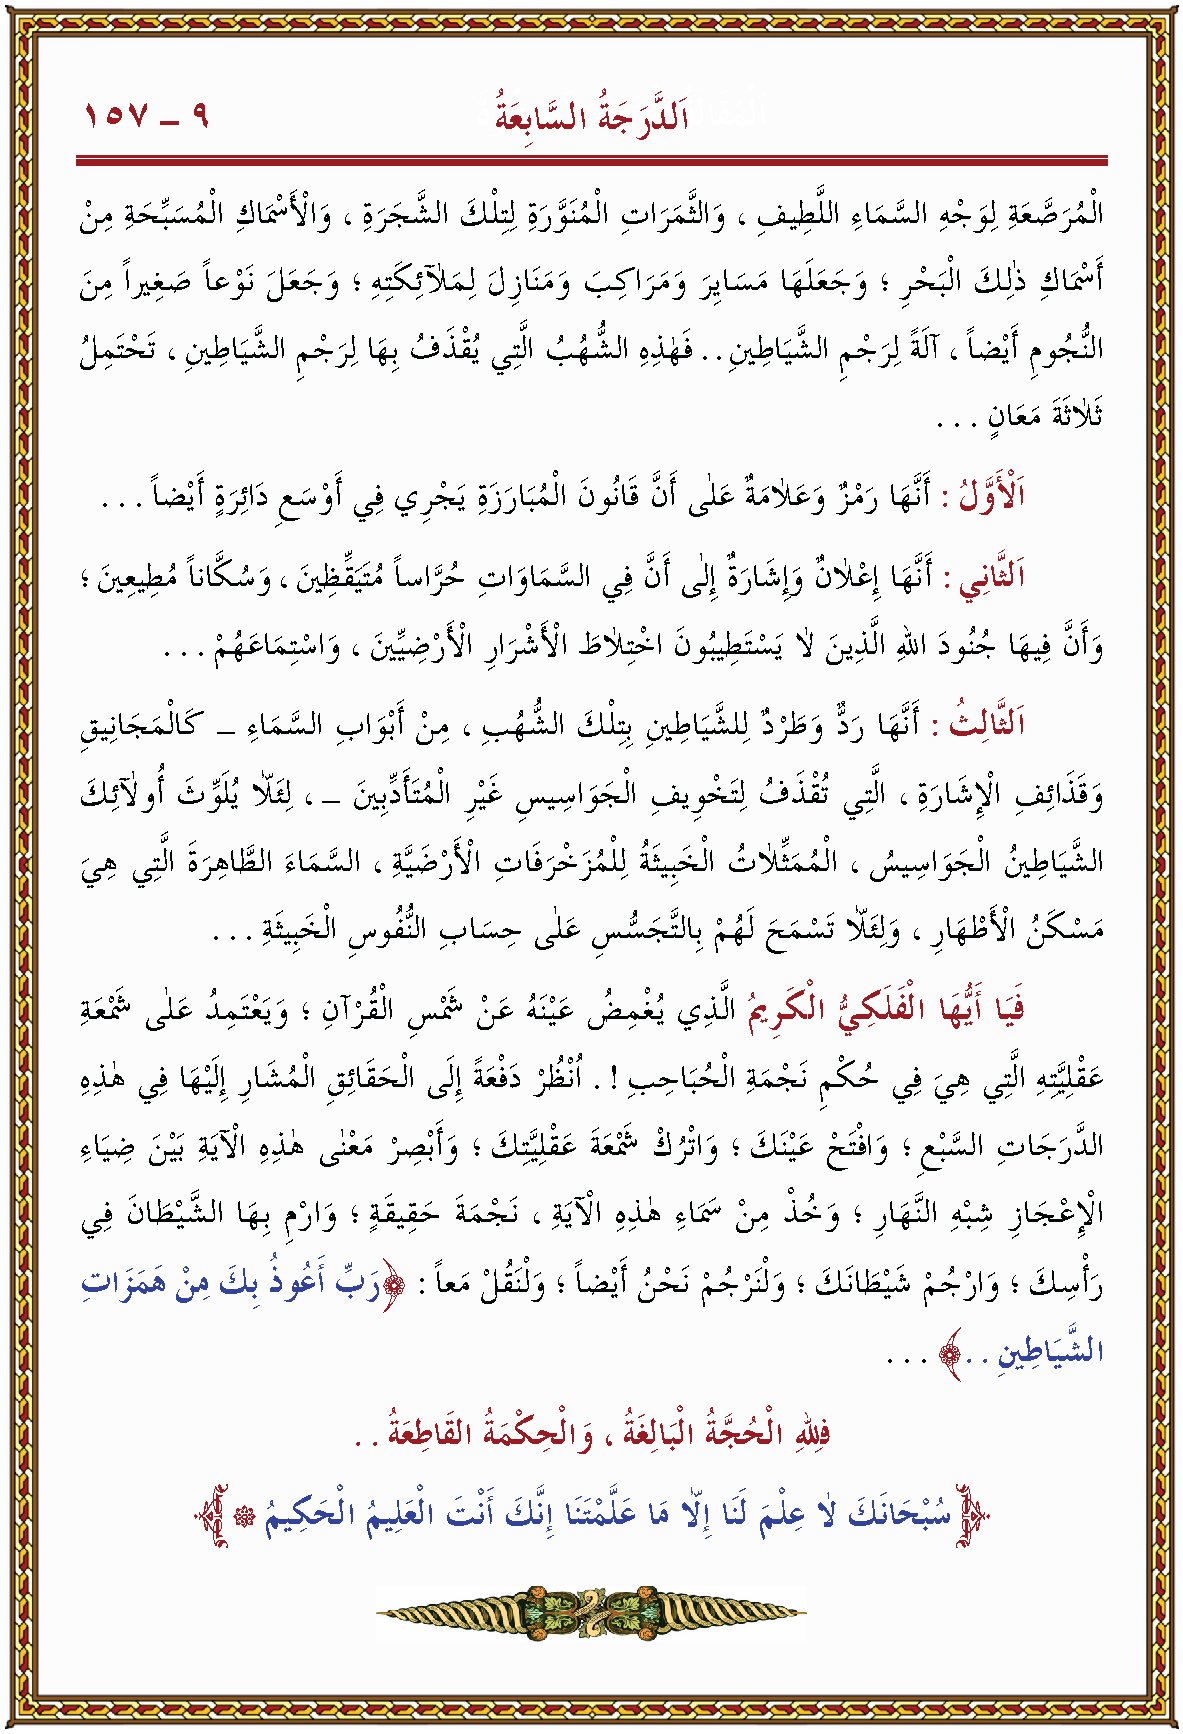 اَلدَّرَجَةُ السَّابِعَةُ
٩ ـ ١٥٧
الْمُرَصَّعَةِ لِوَجْهِ السَّمَاءِ اللَّطِيفِ ، وَالثَّمَرَاتِ الْمُنَوَّرَةِ لِتِلْكَ الشَّجَرَةِ ، وَالْأَسْمَاكِ الْمُسَبِّحَةِ مِنْ
أَسْمَاكِ ذٰلِكَ الْبَحْرِ ؛ وَجَعَلَهَا مَسَايِرَ وَمَرَاكِبَ وَمَنَازِلَ لِمَلَآئِكَتِهِ ؛ وَجَعَلَ نَوْعاً صَغِيراً مِنَ
النُّجُومِ أَيْضاً ، آلَةً لِرَجْمِ الشَّيَاطِينِ . . فَهٰذِهِ الشُّهُبُ الَّتِي يُقْذَفُ بِهَا لِرَجْمِ الشَّيَاطِينِ ، تَحْتَمِلُ
ثَلٰاثَةَ مَعَانٍ . . .
اَلْأَوَّلُ : أَنَّهَا رَمْزٌ وَعَلٰامَةٌ عَلٰى أَنَّ قَانُونَ الْمُبَارَزَةِ يَجْرِي فِي أَوْسَعِ دَائِرَةٍ أَيْضاً . . .
اَلثَّانِي : أَنَّهَا إِعْلٰانٌ وَإِشَارَةٌ إِلٰى أَنَّ فِي السَّمَاوَاتِ حُرَّاساً مُتَيَقِّظِينَ ، وَسُكَّاناً مُطِيعِينَ ؛
وَأَنَّ فِيهَا جُنُودَ اللهِ الَّذِينَ لٰا يَسْتَطِيبُونَ اخْتِلٰاطَ الْأَشْرَارِ الْأَرْضِيِّينَ ، وَاسْتِمَاعَهُمْ . . .
اَلثَّالِثُ : أَنَّهَا رَدٌّ وَطَرْدٌ لِلشَّيَاطِينِ بِتِلْكَ الشُّهُبِ ، مِنْ أَبْوَابِ السَّمَاءِ ـ كَالْمَجَانِيقِ
وَقَذَائِفِ الْإِشَارَةِ ، الَّتِي تُقْذَفُ لِتَخْوِيفِ الْجَوَاسِيسِ غَيْرِ الْمُتَأَدِّبِينَ ـ ، لِئَلّٰا يُلَوِّثَ أُولٰٓئِكَ
الشَّيَاطِينُ الْجَوَاسِيسُ ، الْمُمَثِّلٰاتُ الْخَبِيثَةُ لِلْمُزَخْرَفَاتِ الْأَرْضَيَّةِ ، السَّمَاءَ الطَّاهِرَةَ الَّتِي هِيَ
مَسْكَنُ الْأَطْهَارِ ، وَلِئَلّٰا تَسْمَحَ لَهُمْ بِالتَّجَسُّسِ عَلٰى حِسَابِ النُّفُوسِ الْخَبِيثَةِ . . .
فَيَا أَيُّهَا الْفَلَكِيُّ الْكَرِيمُ الَّذِي يُغْمِضُ عَيْنَهُ عَنْ شَمْسِ الْقُرْآنِ ؛ وَيَعْتَمِدُ عَلٰى شَمْعَةِ
عَقْلِيَّتِهِ الَّتِي هِيَ فِي حُكْمِ نَجْمَةِ الْحُبَاحِبِ ! . اُنْظُرْ دَفْعَةً إِلَى الْحَقَائِقِ الْمُشَارِ إِلَيْهَا فِي هٰذِهِ
الدَّرَجَاتِ السَّبْعِ ؛ وَافْتَحْ عَيْنَكَ ؛ وَاتْرُكْ شَمْعَةَ عَقْلِيَّتِكَ ؛ وَأَبْصِرْ مَعْنٰى هٰذِهِ الْآيَةِ بَيْنَ ضِيَاءِ
الْإِعْجَازِ شِبْهِ النَّهَارِ ؛ وَخُذْ مِنْ سَمَاءِ هٰذِهِ الْآيَةِ ، نَجْمَةَ حَقِيقَةٍ ؛ وَارْمِ بِهَا الشَّيْطَانَ فِي
رَأْسِكَ ؛ وَارْجُمْ شَيْطَانَكَ ؛ وَلْنَرْجُمْ نَحْنُ أَيْضاً ؛ وَلْنَقُلْ مَعاً : ﴿رَبِّ أَعُوذُ بِكَ مِنْ هَمَزَاتِ
الشَّيَاطِينِ . .﴾ . . .
فَلِلّٰهِ الْحُجَّةُ الْبَالِغَةُ ، وَالْحِكْمَةُ القَاطِعَةُ . .
﴿سُبْحَانَكَ لٰا عِلْمَ لَنَا إِلّٰا مَا عَلَّمْتَنَا إِنَّكَ أَنْتَ الْعَلِيمُ الْحَكِيمُ ۞﴾